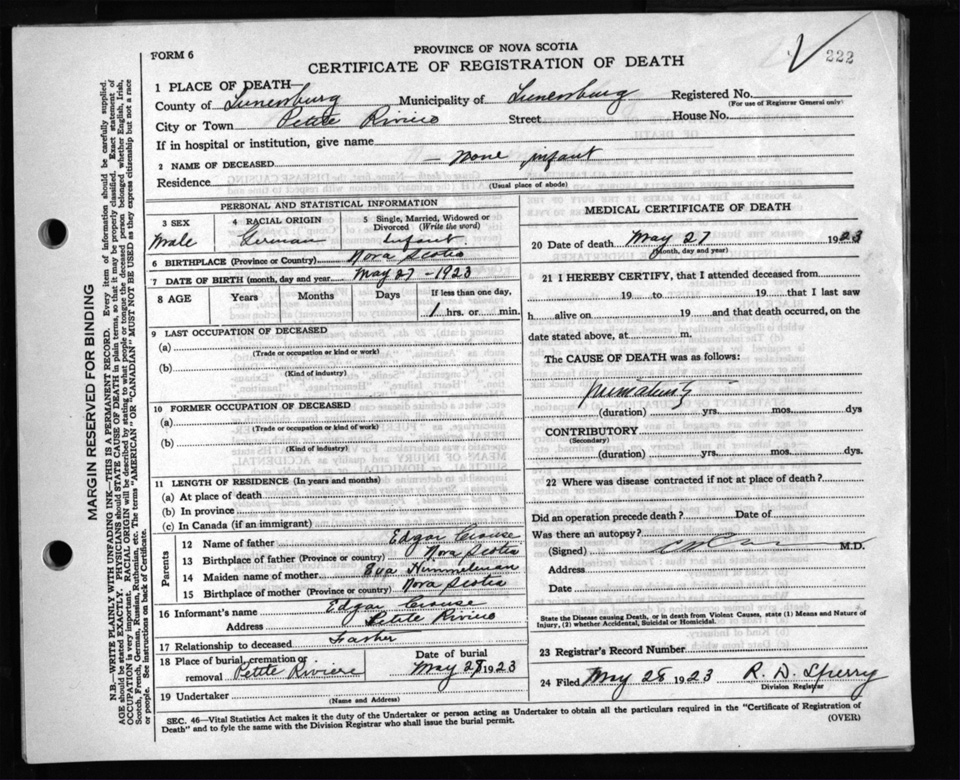 FORM 6
PROVINCE OF NOVA SCOTIA
CERTIFICATE OF REGISTRATION OF DEATH
222
1 PLACE OF DEATH
County of Lunenburg Municipality of Lunenburg Registered No.
(For use of Registrar General only)
City or Town Petite Riviere Street House No.
If in hospital or institution, give name
2 NAME OF DECEASED — None infant
Residence
(Usual place of abode)
PERSONAL AND STATISTICAL INFORMATION
3 SEX 4 RACIAL ORIGIN 5 Single, Married, Widowed or Divorced (Write the word)
Male German Infant
6 BIRTHPLACE (Province or Country) Nova Scotia
7 DATE OF BIRTH (month, day and year) May 27 - 1923
8 AGE Years Months Days If less than one day,
1 hrs. or min.
9 LAST OCCUPATION OF DECEASED
(a)
(Trade or occupation or kind or work)
(b)
(Kind of industry)
10 FORMER OCCUPATION OF DECEASED
(a)
(Trade or occupation or kind of work)
(b)
(Kind of industry)
11 LENGTH OF RESIDENCE (In years and months)
(a) At place of death
(b) In province
(c) In Canada (if an immigrant)
Parents
12 Name of father Edgar Crouse
13 Birthplace of father (Province or country) Nova Scotia
14 Maiden name of mother Eva Himmelman
15 Birthplace of mother (Province or country) Nova Scotia
16 Informant's name Edgar Crouse
Address Petite Riviere
17 Relationship to deceased Father
18 Place of burial, cremation or removal Petite Riviere Date of burial May 28 1923
19 Undertaker
(Name and Address)
MEDICAL CERTIFICATE OF DEATH
20 Date of death May 27 1923
(Month, day and year)
21 I HEREBY CERTIFY, that I attended deceased from
19 to 19 that I last saw
h alive on 19 and that death occurred, on the
date stated above, at m.
The CAUSE OF DEATH was as follows:
Prematurity
(duration) yrs. mos. dys
CONTRIBUTORY
(Secondary)
(duration) yrs. mos. dys.
22 Where was disease contracted if not at place of death?
Did an operation precede death? Date of
Was there an autopsy?
(Signed) M.D.
Address
Date
State the Disease causing Death, or in death from Violent Causes, state (1) Means and Nature of
Injury, (2) whether Accidental, Suicidal or Homicidal.
23 Registrar's Record Number
24 Filed May 28 1923 R. D. Sperry
Division Registrar
SEC. 46—Vital Statistics Act makes it the duty of the Undertaker or person acting as Undertaker to obtain all the particulars required in the "Certificate of Registration of
Death" and to fyle the same with the Division Registrar who shall issue the burial permit.
(OVER)
MARGIN RESERVED FOR BINDING
N.B.—WRITE PLAINLY WITH UNFADING INK—THIS IS A PERMANENT RECORD. Every item of information should be carefully supplied.
AGE should be stated EXACTLY. PHYSICIANS should STATE CAUSE OF DEATH in plain terms, so that it may be properly classified. Exact statement of
OCCUPATION is very important. RACIAL ORIGIN will be described by stating to what people or tongue the deceased person belonged whether English, Irish,
Scotch, French, German, Russian, Ruthenian, etc. The terms "AMERICAN" OR "CANADIAN" MUST NOT BE USED as they express citizenship but not a race
or people. See instructions on back of Certificate.